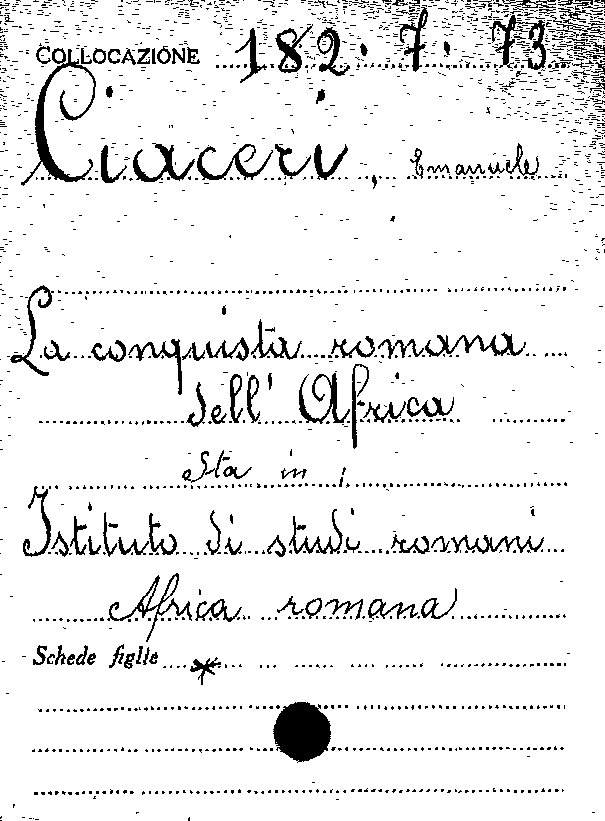 COLLOCAZIONE 182. 7. 73
Ciaceri, Emanuele
La conquista romana
dell' Africa
Sta in :
Istituto di studi romani
Africa romana
Schede figlie *